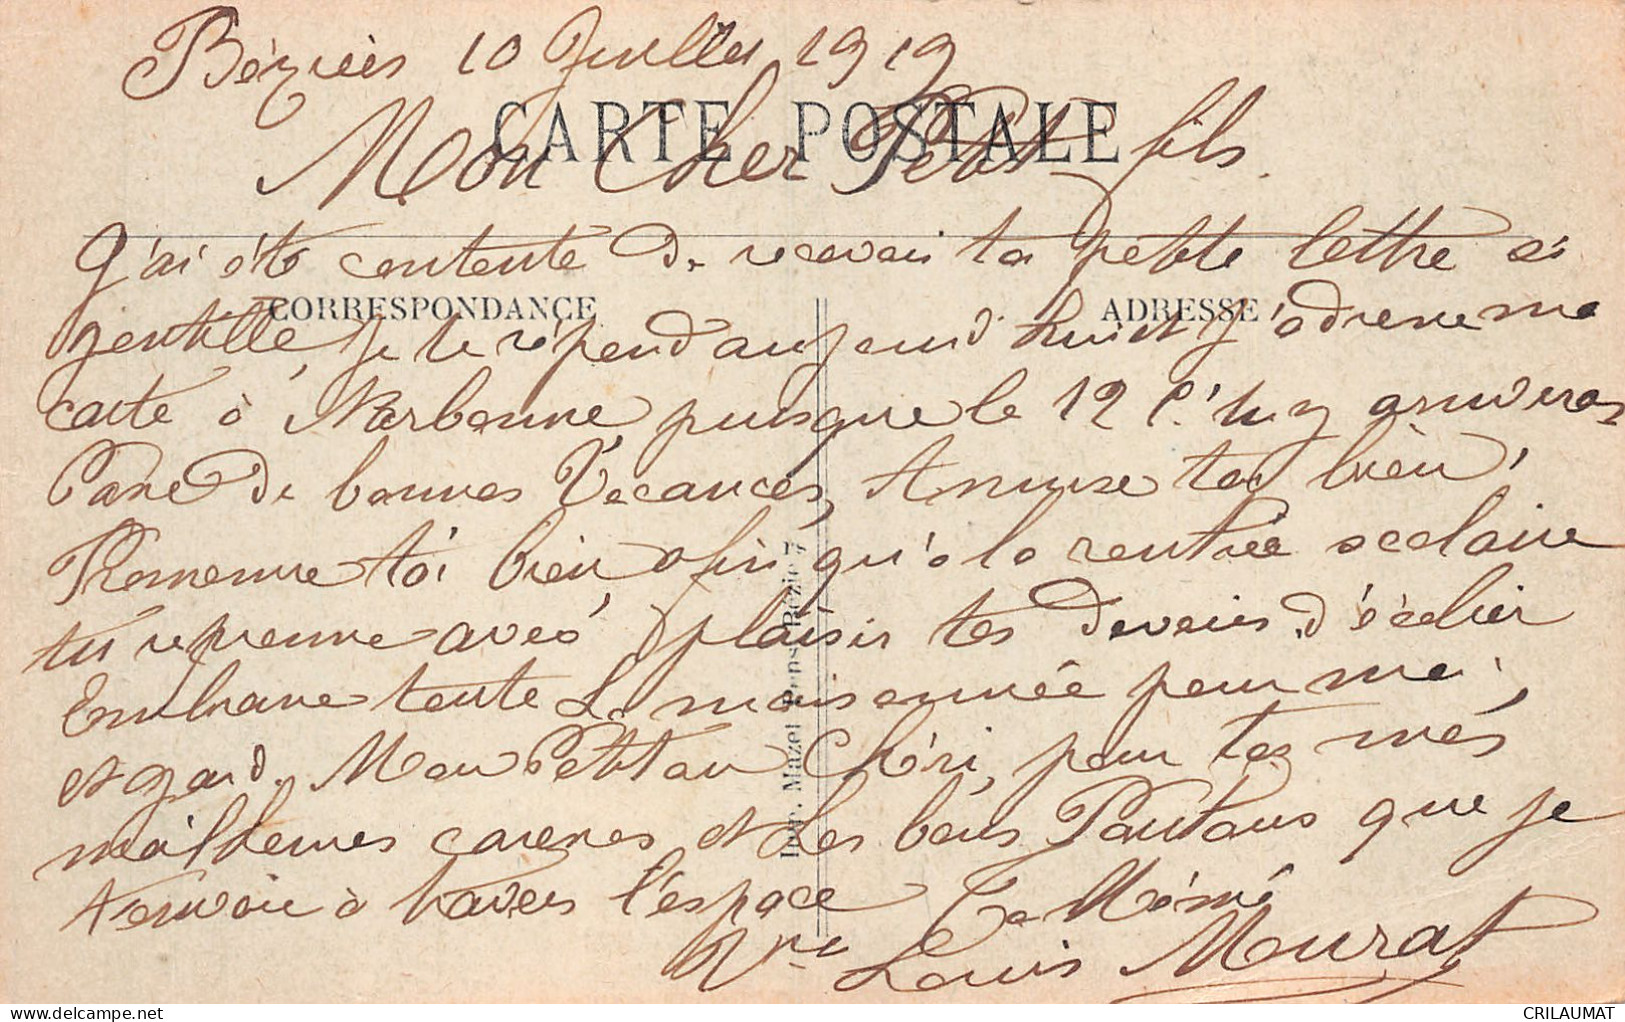 Béziers 10 Juillet 1919
CARTE POSTALE
Mon Cher Petit fils.
J'ai été contente de recevoir ta petite lettre si
CORRESPONDANCE
ADRESSE
gentille, je te répond aujourd'huit j'adresse ma
carte à Narbonne, puisque le 12 t'u y arriveras
Passe de bonnes Vacances, Amuse toi bien,
Promenne toi bien, afin qu'à la rentrée scolaire
tu reprenne avec plaisir tes devoirs d'écolier
Embrasse toute la maisonnée pour moi,
et gard, Mon Petitou Chéri, pour toi mes
meilleures caresses et les bons Poutous que je
t'envoie à travers l'espace Ta Mémé
Vve Louis Mourat
Imp. Mazet Pons-Bézie